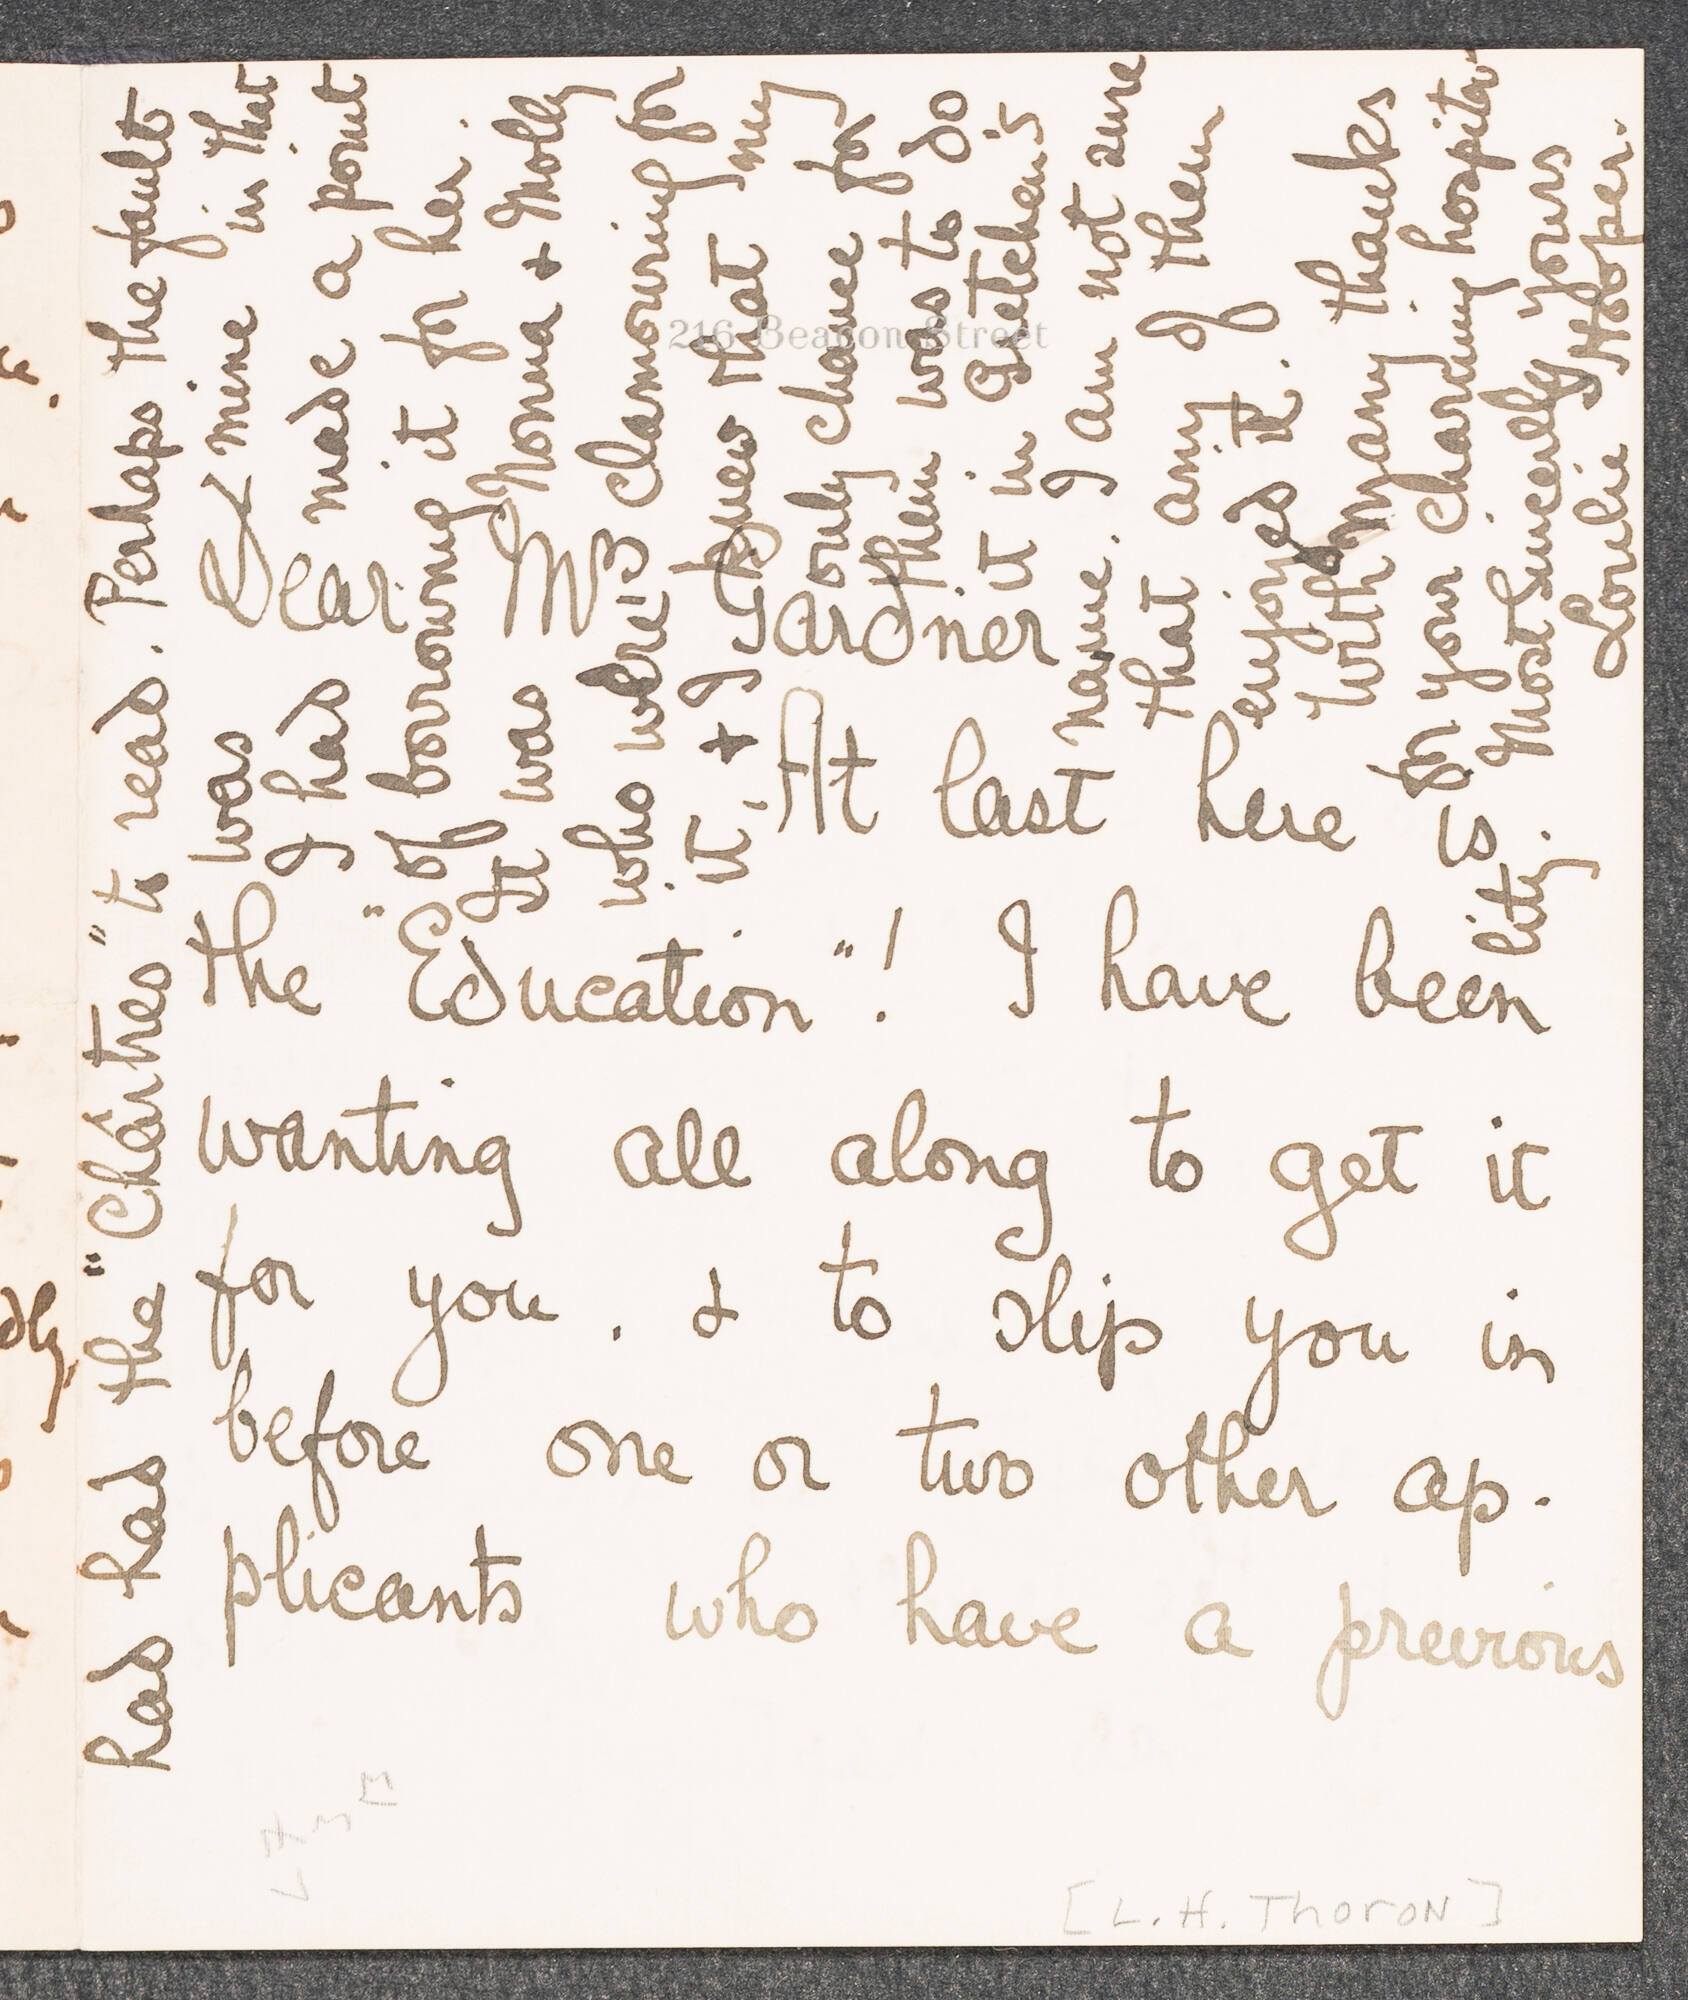 216 Beacon Street
Dear Mrs Gardner
At last here is
the "Education"! I have been
wanting all along to get it
for you. & to slip you in
before one or two other ap-
plicants who have a previous
had had the "Chârtres" to read. Perhaps the fault
was mine in that
I had made a point
of borrowing it for her.
It was Nonna & Molly
who were clamouring for
it, & I knew that my
only chance for
them was to do
it in Gretchen's
name. I am not sure
that any of them
enjoyed it.
With many thanks
for your charming hospita-
lity.
Most Sincerely yours
Louise Hooper.
[L. H. Thoron]
dly